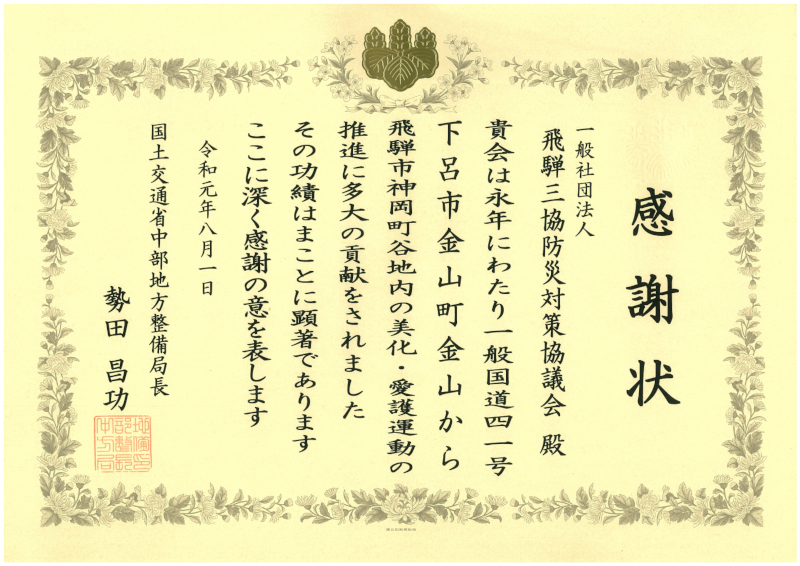 感謝状
一般社団法人
飛騨三協防災対策協議会 殿
貴会は永年にわたり一般国道四一号
下呂市金山町金山から
飛騨市神岡町谷地内の美化・愛護運動の
推進に多大の貢献をされました
その功績はまことに顕著であります
ここに深く感謝の意を表します
令和元年八月一日
国土交通省中部地方整備局長
勢田 昌功